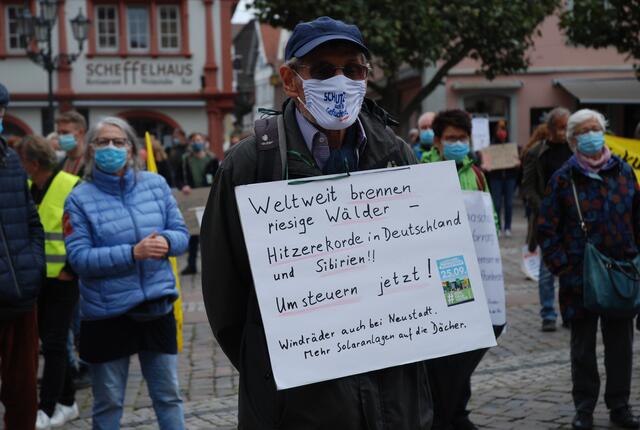 SCHEFFELHAUS
SCHUTZ
Weltweit brennen
riesige Wälder –
Hitzerekorde in Deutschland
und Sibirien!!
Umsteuern jetzt!
25.09.
Windräder auch bei Neustadt.
Mehr Solaranlagen auf die Dächer.